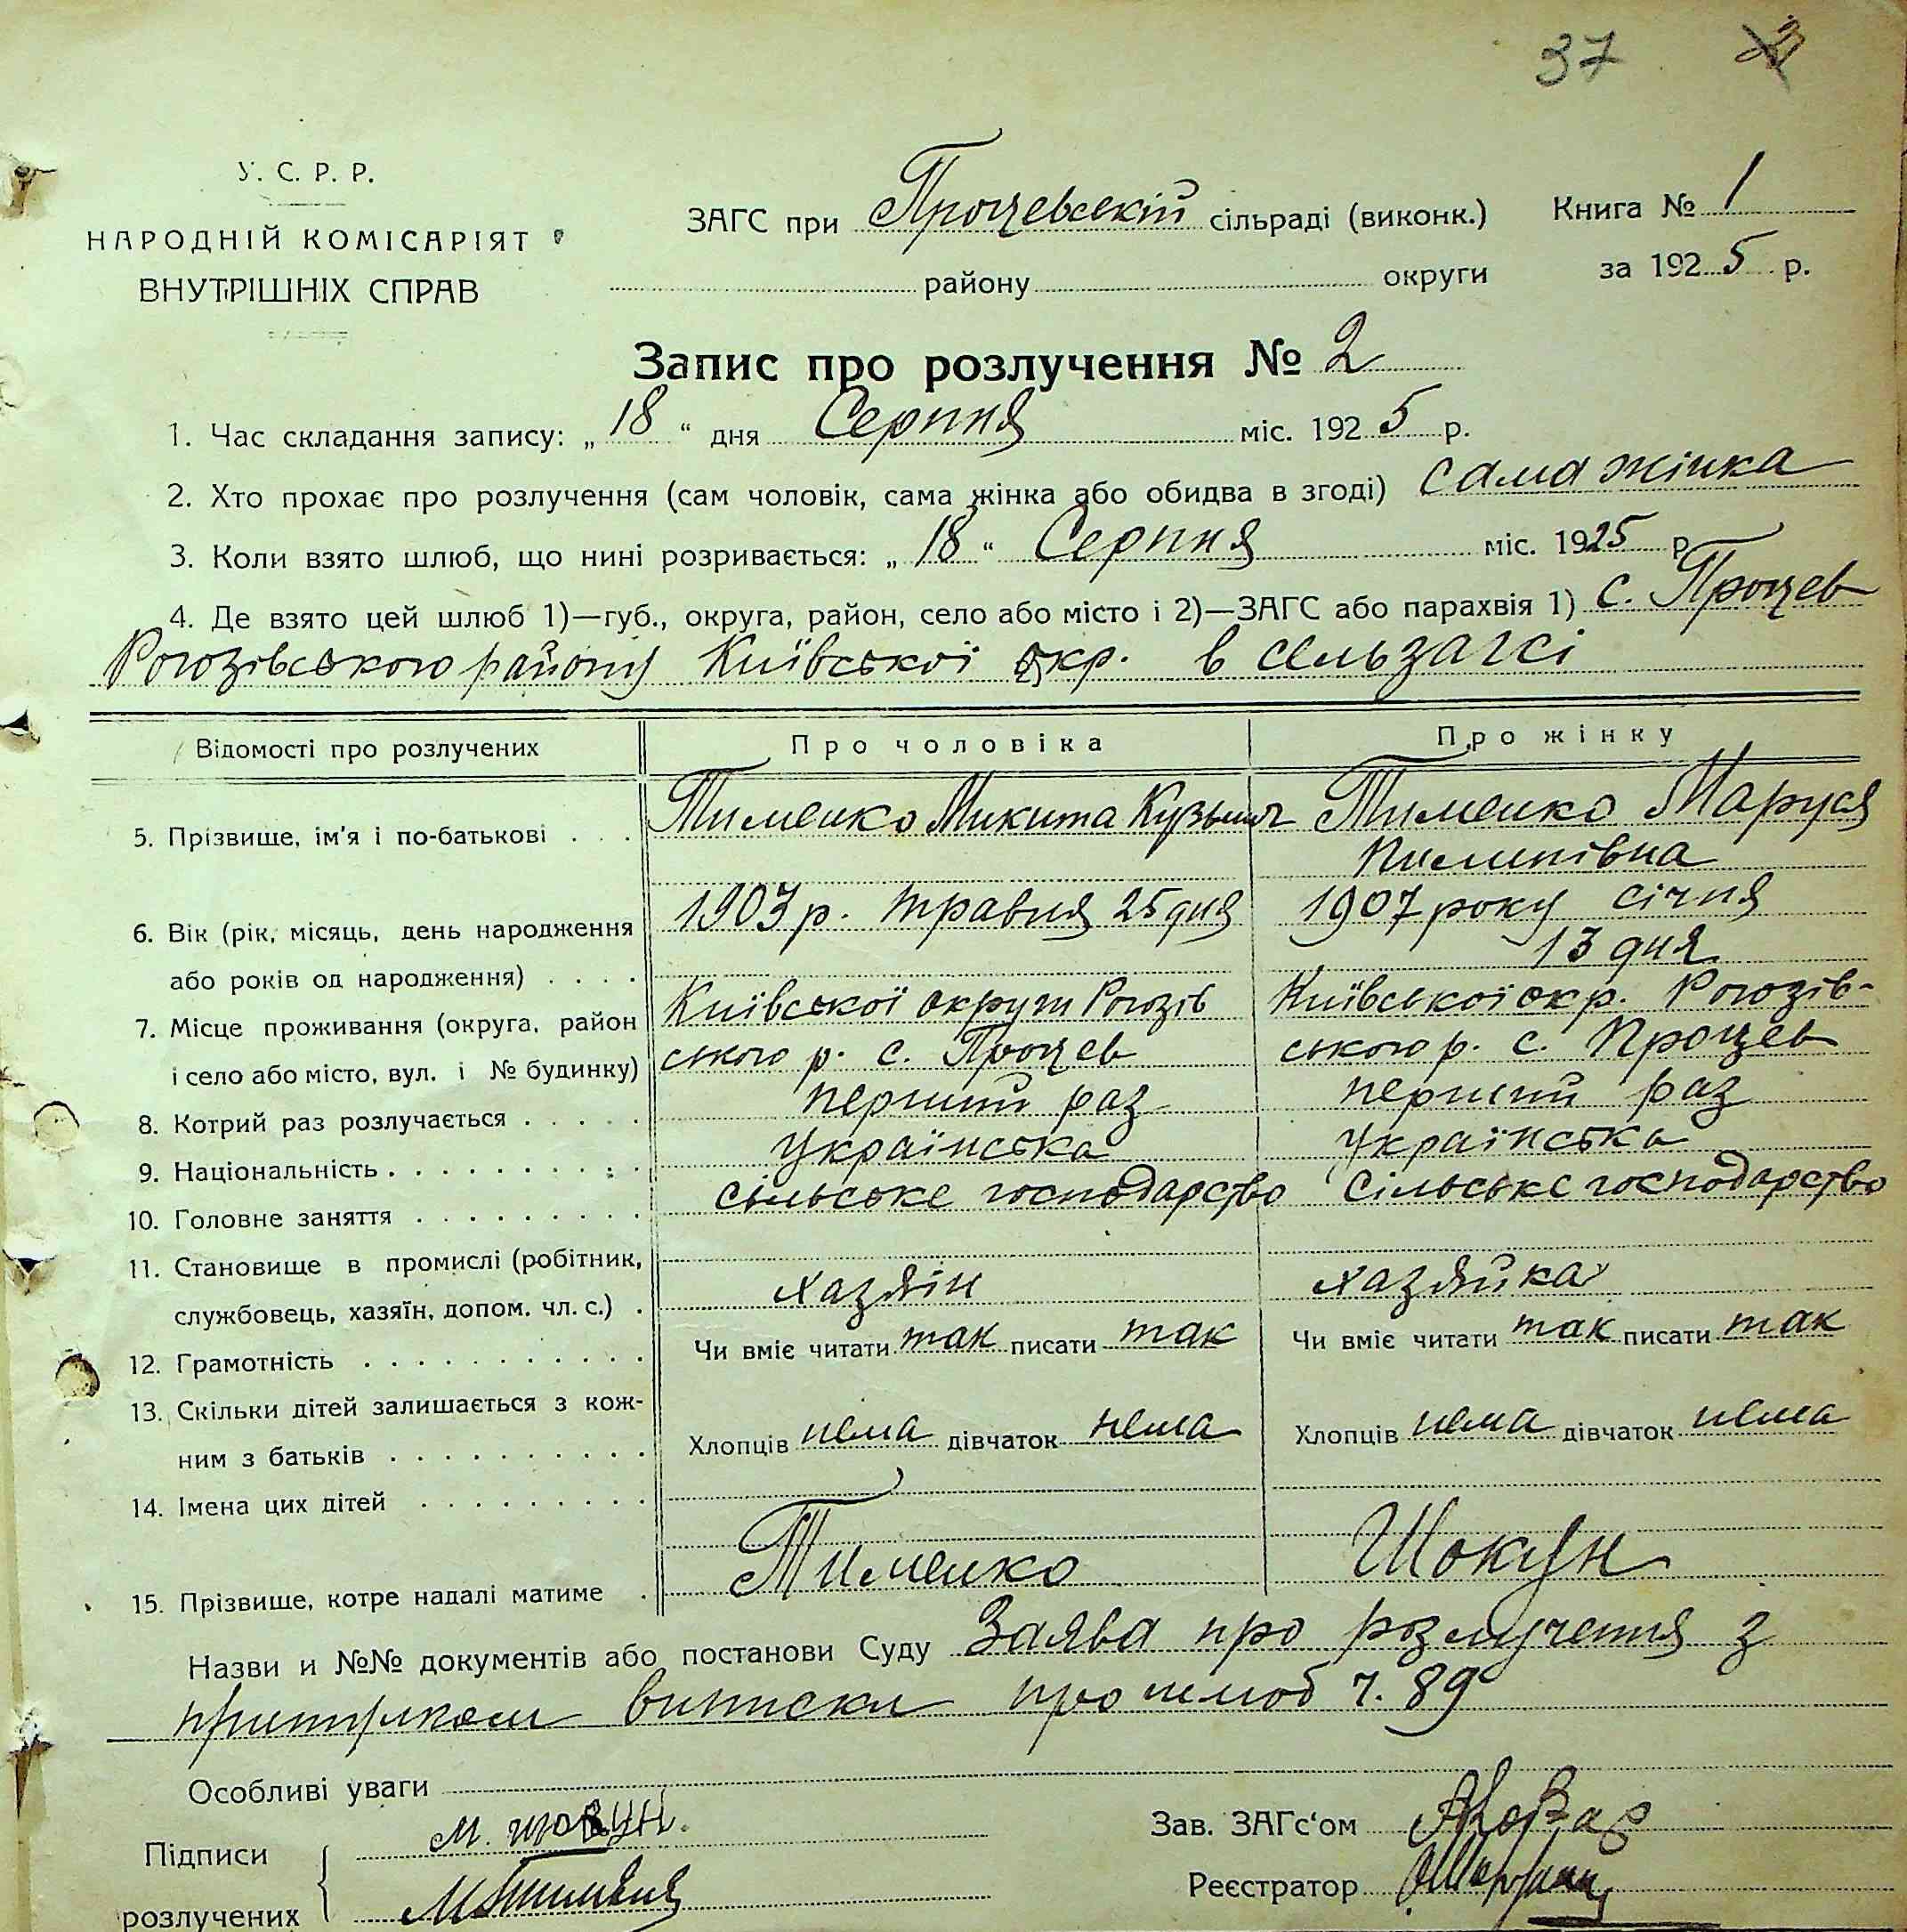 37
У. С. Р. Р.
НАРОДНІЙ КОМІСАРІЯТ
ВНУТРІШНІХ СПРАВ
ЗАГС при Процевській сільраді (виконк.) Книга № 1
району округи за 1925 р.
Запис про розлучення № 2
1. Час складання запису: „18“ дня Серпня міс. 1925 р.
2. Хто прохає про розлучення (сам чоловік, сама жінка або обидва в згоді) сама жінка
3. Коли взято шлюб, що нині розривається: „18“ Серпня міс. 1925 р.
4. Де взято цей шлюб 1)—губ., округа, район, село або місто і 2)—ЗАГС або парахвія 1) с. Процев
Рогозівського району Київської окр. в сельзагсі
Відомості про розлучених Про чоловіка Про жінку
5. Прізвище, ім'я і по-батькові . . . Тименко Микита Кузьмич Тименко Маруся
Пилипівна
6. Вік (рік, місяць, день народження 1903 р. травня 25 дня 1907 року січня
або років од народження) . . . . 13 дня
7. Місце проживання (округа, район Київської округи Рогозів Київської окр. Рогозів-
і село або місто, вул. і № будинку) ського р. с. Процев ського р. с. Процев
8. Котрий раз розлучається . . . . . перший раз перший раз
9. Національність . . . . . . . . . . Українська Українська
10. Головне заняття . . . . . . . . . сільське господарство Сільське господарство
11. Становище в промислі (робітник,
службовець, хазяїн, допом. чл. с.) . хазяін хазяйка
12. Грамотність . . . . . . . . . . . Чи вміє читати так писати так Чи вміє читати так писати так
13. Скільки дітей залишається з кож-
ним з батьків . . . . . . . . . . Хлопців нема дівчаток нема Хлопців нема дівчаток нема
14. Імена цих дітей . . . . . . . . .
15. Прізвище, котре надалі матиме . Тименко Шокун
Назви и №№ документів або постанови Суду Заява про розлучення з
притулком виписки про шлюб ч. 89
Особливі уваги
Підписи М. шокун. Зав. ЗАГс'ом
розлучених Реєстратор